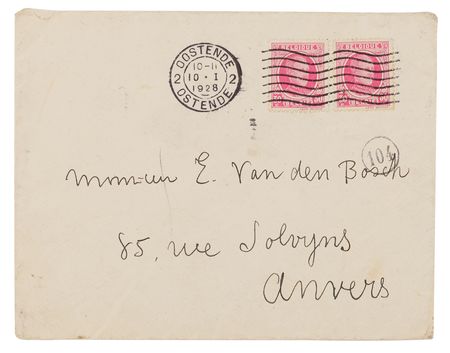 OOSTENDE
10-11
2 10 · I 2
1928
OSTENDE
BELGIQUE BELGIQUE
104
Monsieur E. Van den Bosch
85, rue Solvyns
Anvers